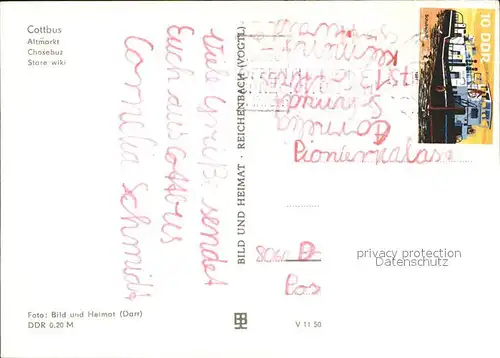 Cottbus
Altmarkt
Chosebuz
Stare wiki
Viele Grüße sendet
Euch aus Cottbus
Cornelia Schmidt
BILD UND HEIMAT · REICHENBACH (VOGTL)
Cornelia
Schmidt
7513 Cottbus
10 DDR
Pionierpalast
8060 D
Pos
privacy protection
Datenschutz
Foto: Bild und Heimat (Darr)
DDR 0,20 M
V 11 50